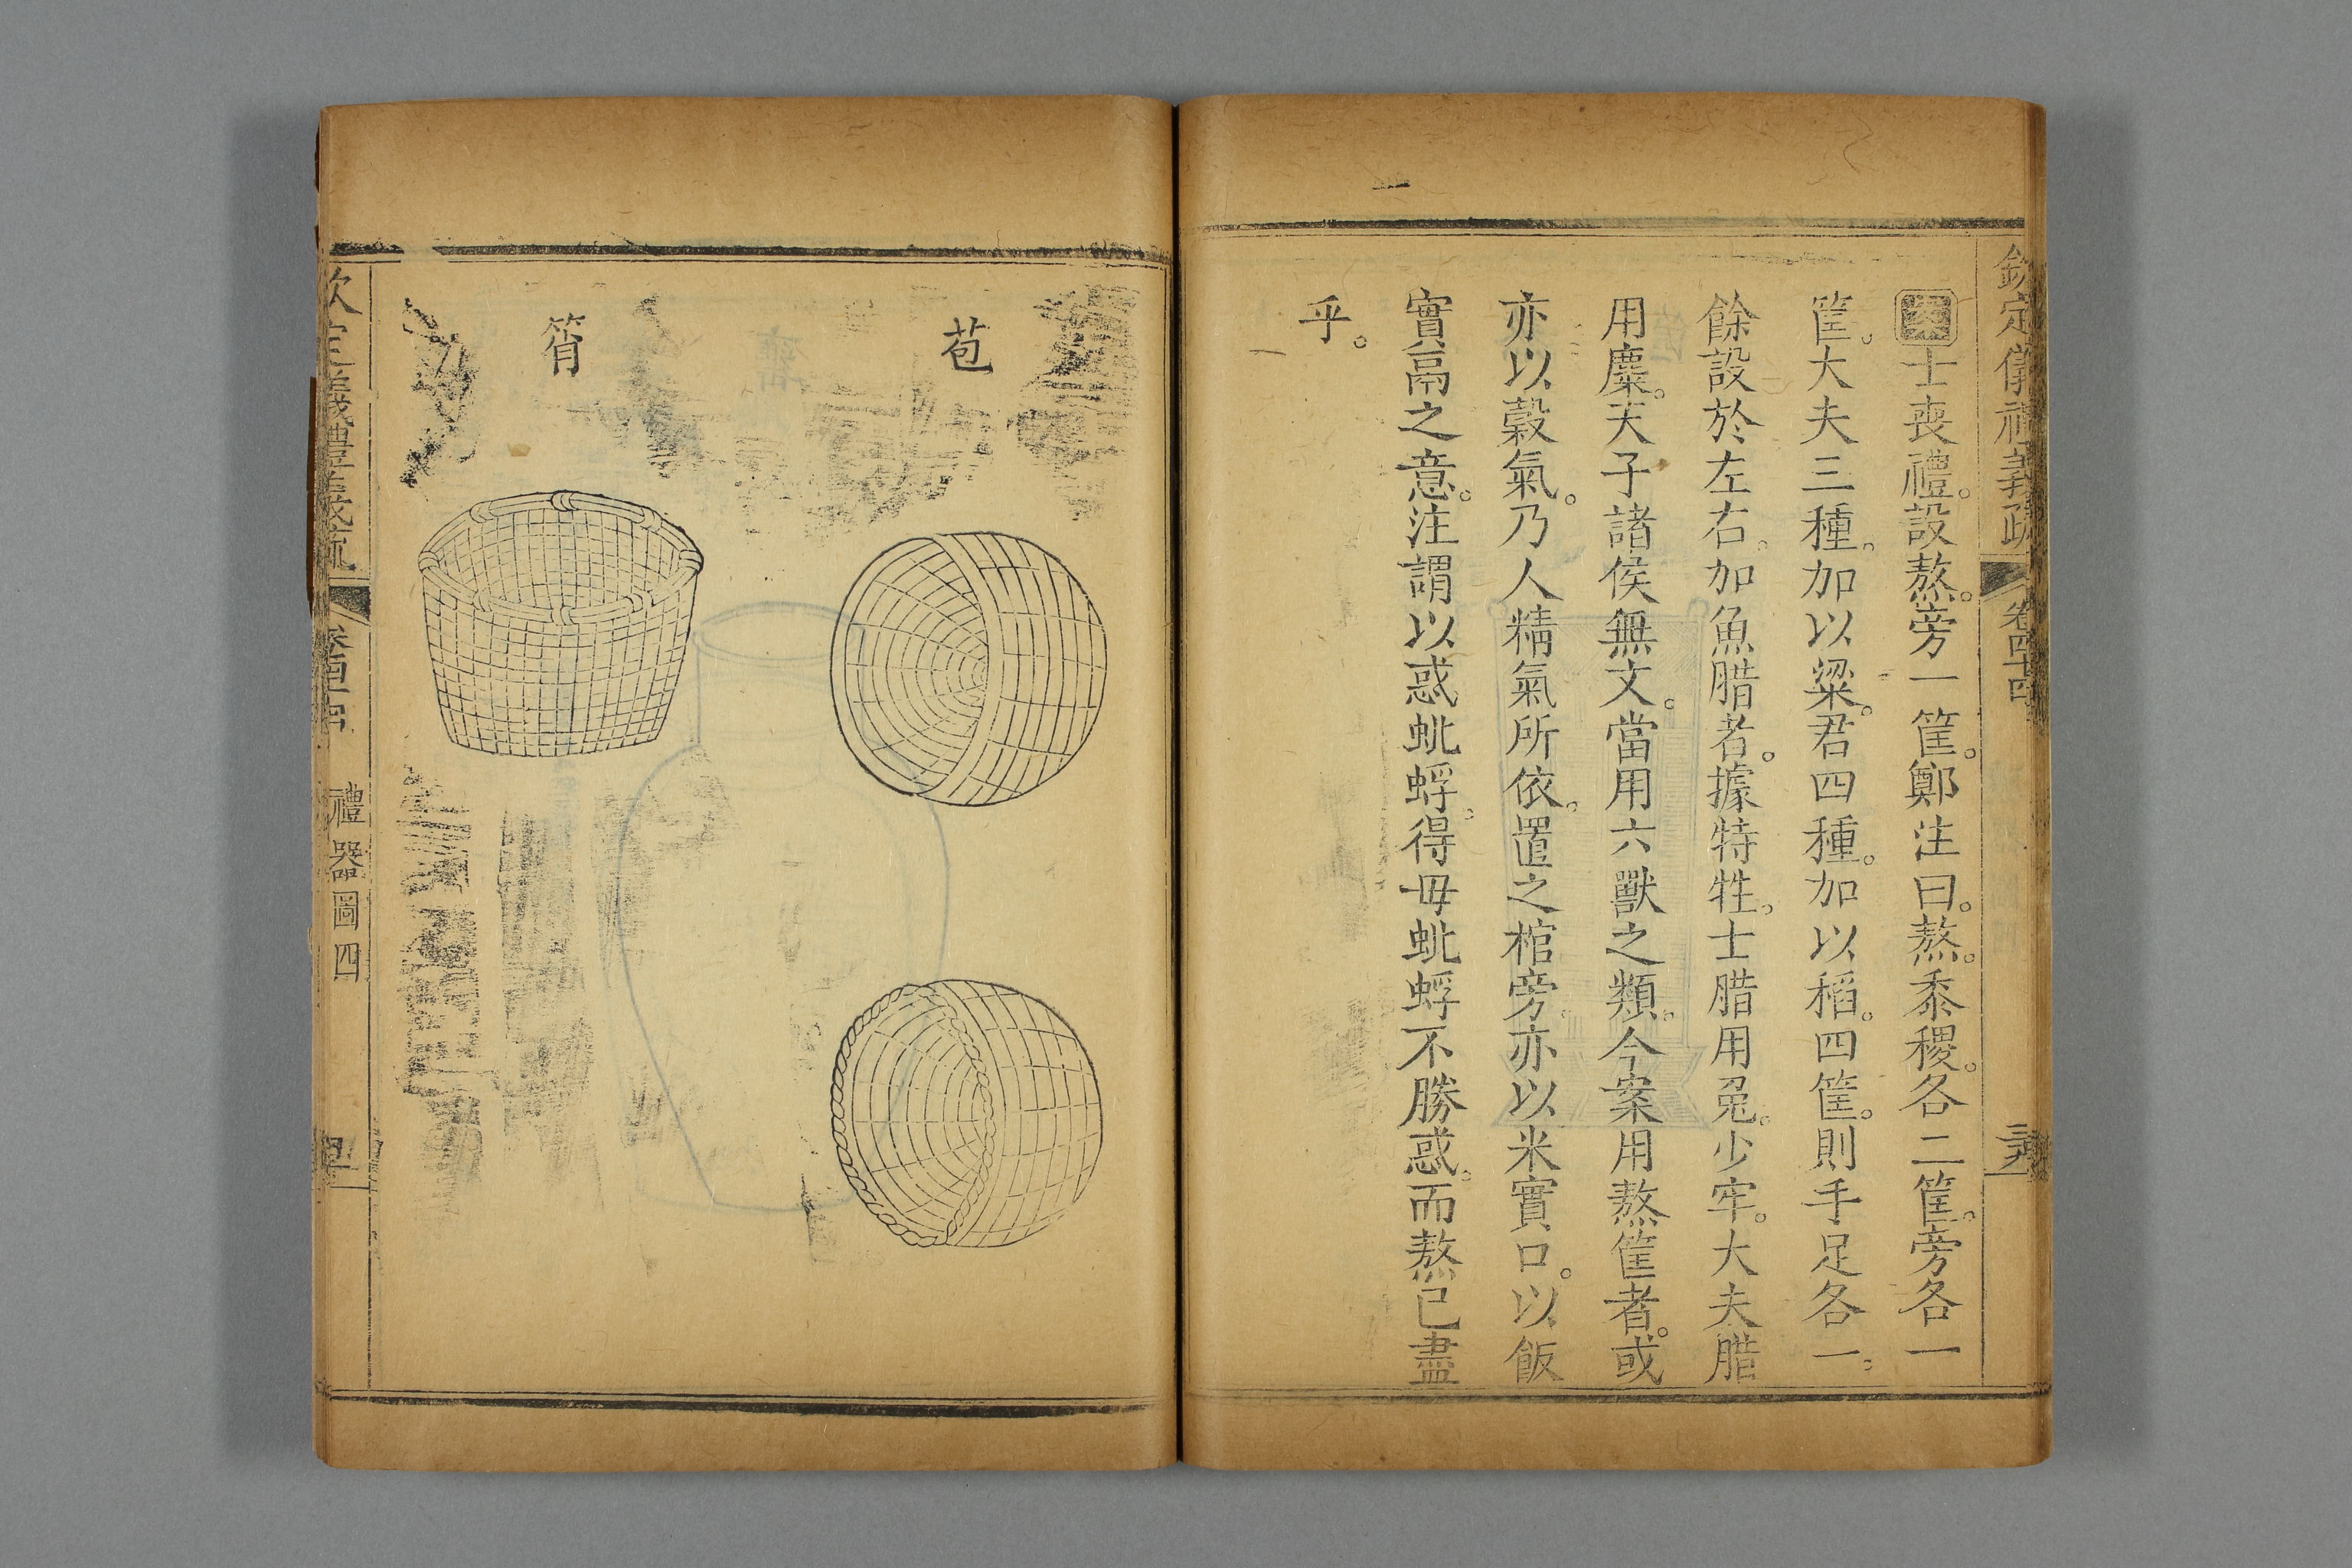 欽定儀禮義疏 卷四十四
案士喪禮。設熬。旁一筐。鄭注曰。熬。黍稷。各二筐。旁各一
筐。大夫三種。加以粱。君四種。加以稻。四筐。則手足各一。
餘設於左右。加魚腊者。據特牲。士腊用兔。少牢。大夫腊
用麋。天子諸侯無文。當用六獸之類。今案用熬筐者。或
亦以穀氣。乃人精氣所依。置之棺旁。亦以米實口。以飯
實鬲之意。注謂以惑蚍蜉。得毋蚍蜉不勝惑。而熬已盡
乎。
苞
筲
欽定儀禮義疏
禮器圖四